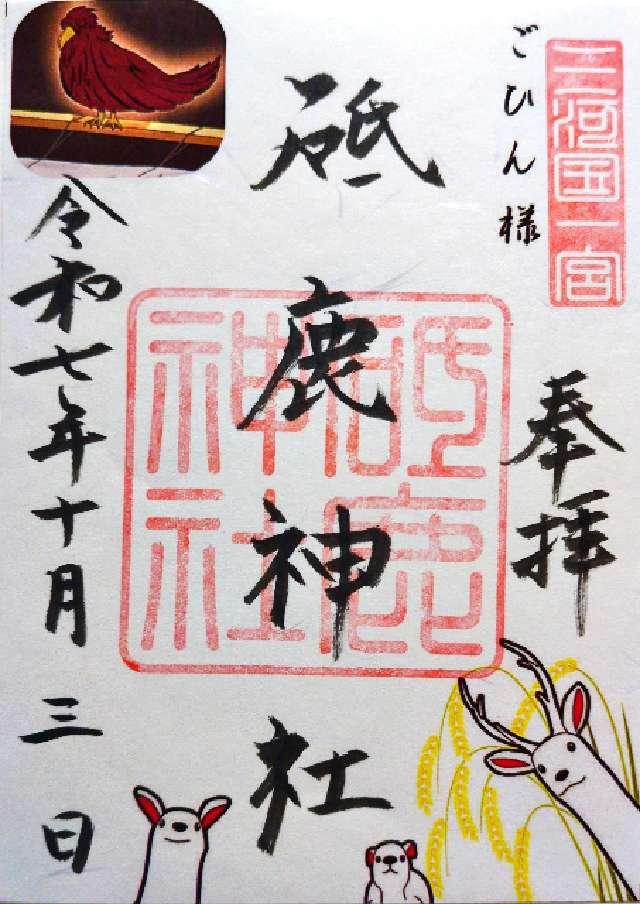 三河国一宮
ごひん様
奉拝
砥鹿神社
砥鹿神社
令和七年十月三日